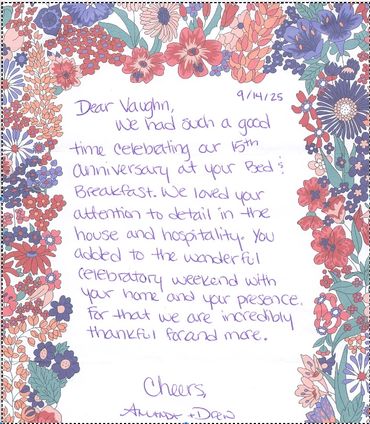 9/14/25
Dear Vaughn,
We had such a good
time celebrating our 15th
anniversary at your Bed &
Breakfast. We loved your
attention to detail in the
house and hospitality. You
added to the wonderful
celebratory weekend with
your home and your presence.
For that we are incredibly
thankful for and more.
Cheers,
Amanda + Drew